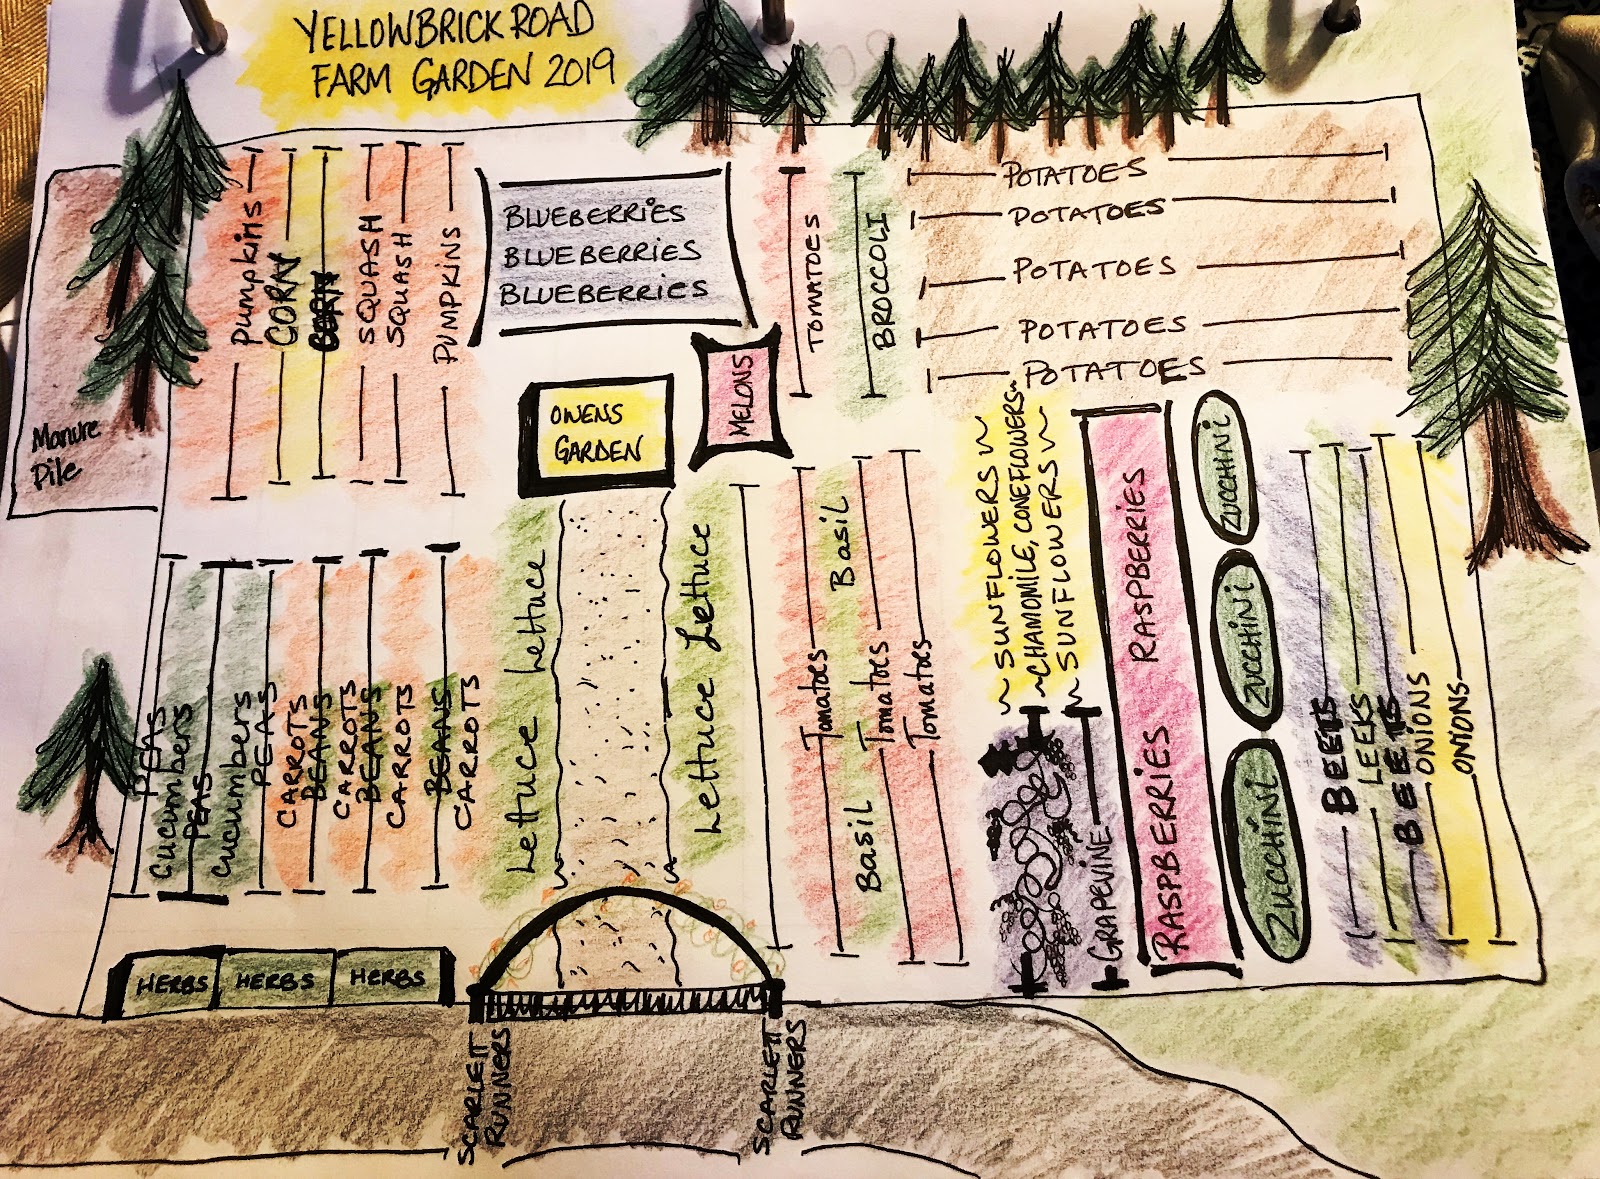 YELLOWBRICK ROAD
FARM GARDEN 2019
Manure
Pile
Pumpkins
CORN
CORN
SQUASH
SQUASH
PUMPKINS
BLUEBERRIES
BLUEBERRIES
BLUEBERRIES
MELONS
OWENS
GARDEN
TOMATOES
BROCCOLI
POTATOES
POTATOES
POTATOES
POTATOES
POTATOES
PEAS
Cucumbers
PEAS
Cucumbers
PEAS
CARROTS
BEANS
CARROTS
BEANS
CARROTS
BEANS
CARROTS
Lettuce Lettuce
Lettuce Lettuce
Tomatoes
Basil Basil
Tomatoes
Tomatoes
SUNFLOWERS
CHAMOMILE, CONEFLOWERS
SUNFLOWERS
GRAPEVINE
RASPBERRIES RASPBERRIES
ZUCCHINI
ZUCCHINI
ZUCCHINI
BEETS
LEEKS
BEETS
ONIONS
ONIONS
HERBS HERBS HERBS
SCARLETT
RUNNERS
SCARLETT
RUNNERS